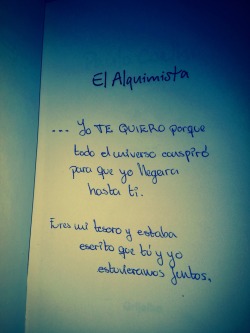 El Alquimista
... Yo TE QUIERO porque
todo el universo conspiró
para que yo llegara
hasta ti.
Eres mi tesoro y estaba
escrito que tú y yo
estuvieramos juntos.